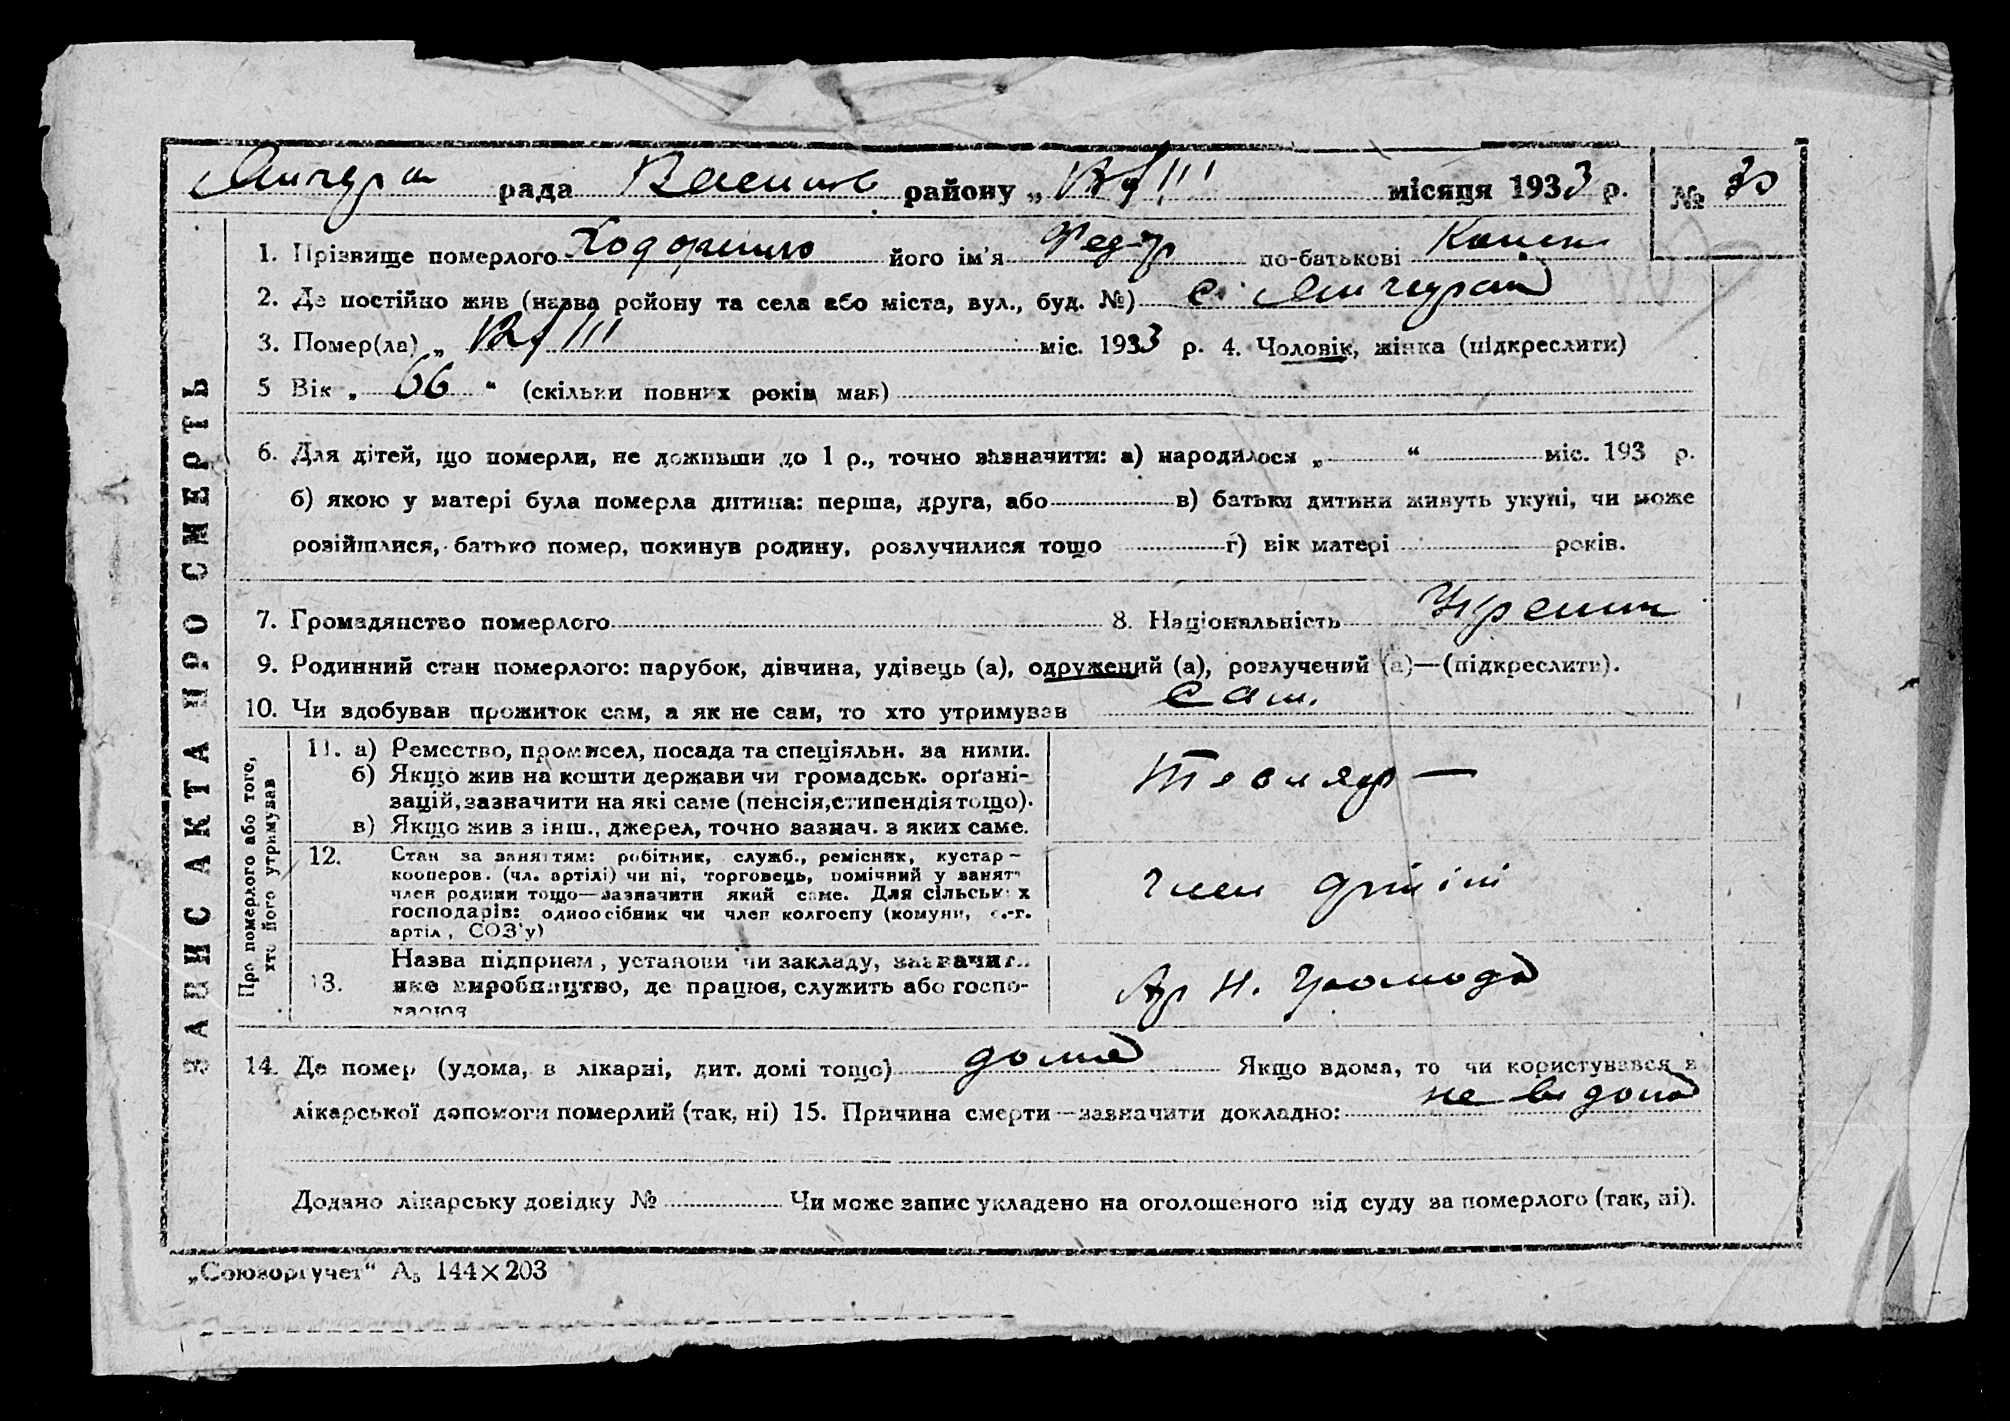 рада район у „ III місяця 1933 р. № 30
1. Прізвище померлого його ім'я Федір по-батькові
2. Де постійно жив (назва району та села або міста, вул., буд. №) с.
3. Помер(ла) „ III міс. 1933 р. 4. Чоловік, жінка (підкреслити)
5 Вік „ 66 “ (скільки повних років мав)
6. Для дітей, що померли, не доживши до 1 р., точно зазначити: а) народилося „ “ міс. 193 р.
б) якою у матері була померла дитина: перша, друга, або в) батьки дитини живуть укупі, чи може
розійшлися, батько помер, покинув родину, розлучилися тощо г) вік матері років.
7. Громадянство померлого 8. Національність
9. Родинний стан померлого: парубок, дівчина, удівець (а), одружений (а), розлучений (а)—(підкреслити).
10. Чи здобував прожиток сам, а як не сам, то хто утримував сам.
11. а) Ремество, промисел, посада та спеціяльн. за ними.
б) Якщо жив на кошти держави чи громадськ. орґані-
зацій, зазначити на які саме (пенсія, стипендія тощо).
в) Якщо жив з інш., джерел, точно зазнач. з яких саме.
Тесляр —
12. Стан за заняттям: робітник, служб., ремісник, кустар–
кооперов. (чл. артілі) чи ні, торговець, помічний у занятт
член родини тощо—зазначити який саме. Для сільських
господарів: одноосібник чи член колгоспу (комуни, с.-г.
артіл, СОЗ'у)
член артілі
13. Назва підприєм, установи чи закладу, зазначити
яке виробництво, де працює, служить або госпо-
дарює
Ар Н. Громода
14. Де помер (удома, в лікарні, дит. домі тощо) дома Якщо вдома, то чи користувався в
лікарської допомоги померлий (так, ні) 15. Причина смерти—зазначити докладно: не відома
Додано лікарську довідку № Чи може запис укладено на оголошеного від суду за померлого (так, ні).
„Союзоргучет“ А₅ 144×203
ЗАПИС АКТА ПРО СМЕРТЬ
Про померлого або того,
хто його утримував